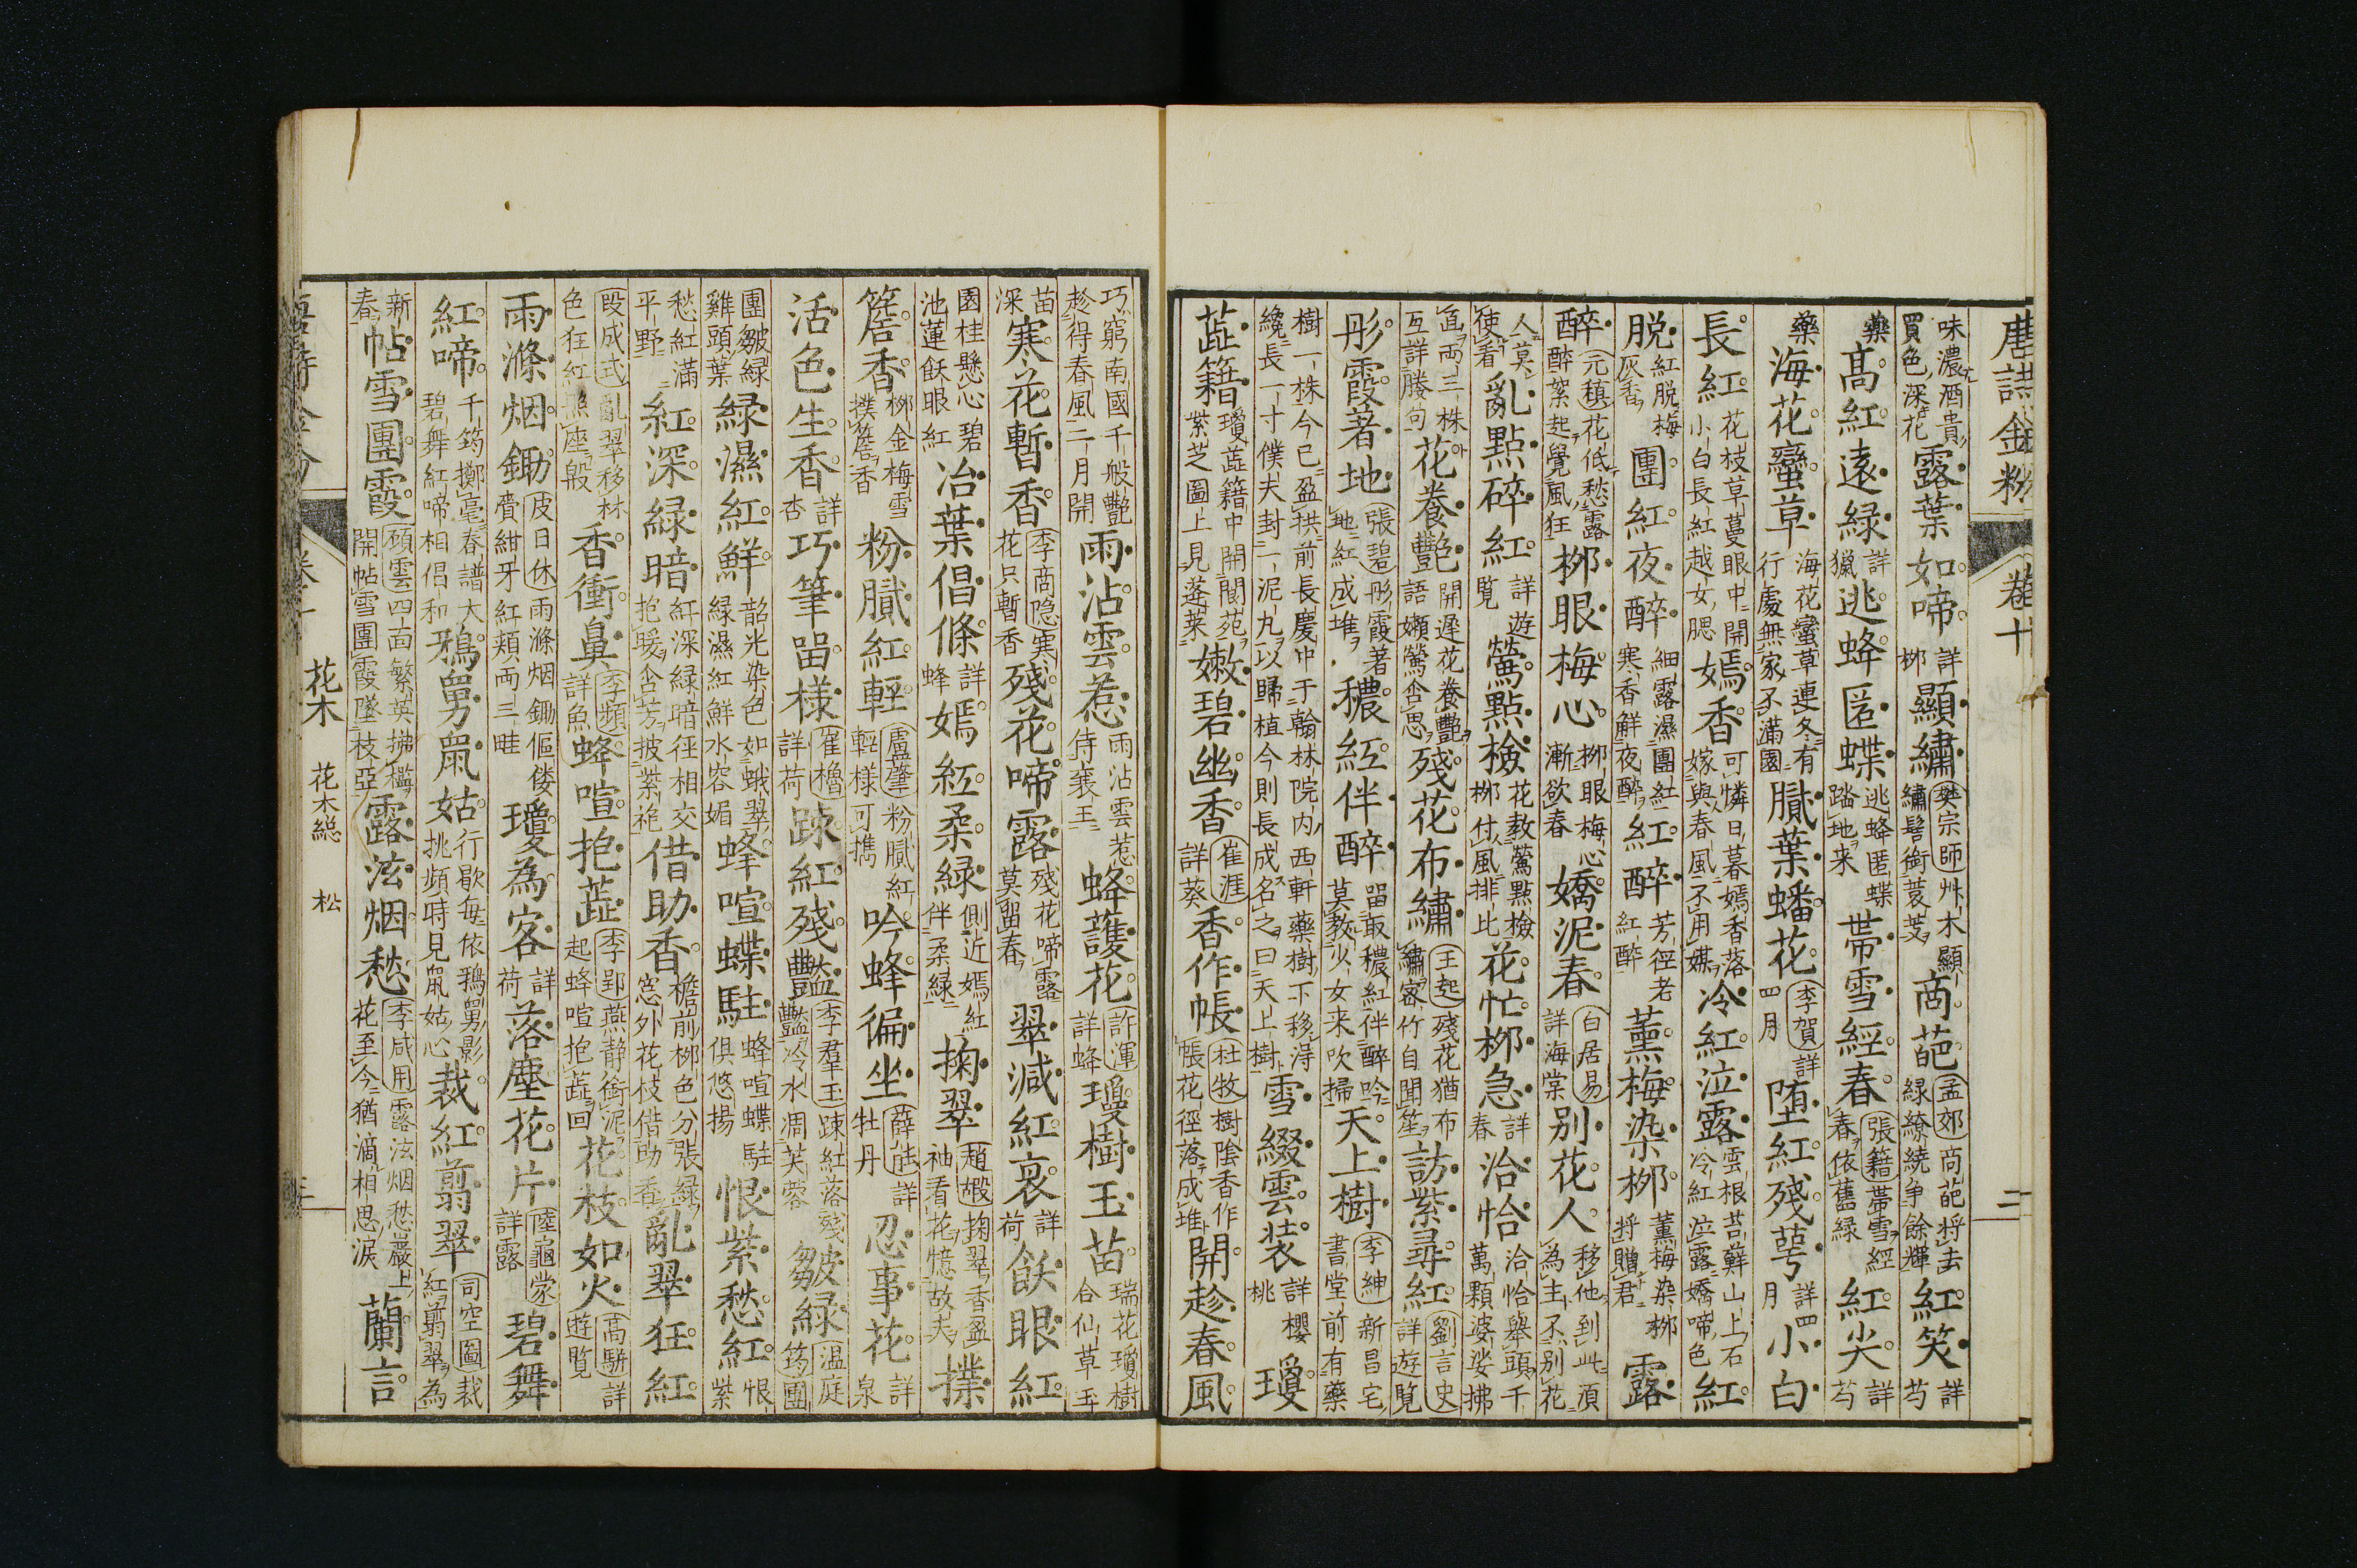 唐詩金粉 卷十 二
味濃酒貴買色深花 露葉如啼 詳柳 顯繡 樊宗師 艸木顯繡髻銜莨芰 商葩 孟郊 商葩將去綠繚繞争餘輝 紅笑 詳芍
藥 高紅遠緑 詳獵 逃蜂匿蝶 逃蜂匿蝶踏地来 帯雪經春 張籍 帯雪經春依舊緑 紅尖 詳芍
藥 海花蠻草 海花蠻草連冬有行處無家不滿園 膩葉蟠花 李賀 詳四月 堕紅殘萼 詳四月 小白
長紅 花枝草蔓眼中開小白長紅越女腮 嫣香 可憐日暮嫣香落嫁與春風不用媒 冷紅泣露 雲根苔蘚山上石冷紅泣露嬌啼色 紅
脱 紅脱梅灰香 團紅夜醉 細露濕團紅寒香解夜醉 紅醉 芳徑老紅醉 薫梅染柳 薫梅染柳将贈君 露
醉 元稹 花低愁露醉絮起覺風狂 柳眼梅心 柳眼梅心漸欲春 嬌泥春 白居易 詳海棠 别花人 移他到此須為主不别花
人莫使看 亂點碎紅 詳遊覽 鶯點檢 花教鶯點檢柳付風排比 花忙柳急 詳春 洽恰 洽恰擧頭千萬顆婆娑拂
面兩三株互詳勝句 花養艷 開遅花養艷語嬾鶯含思 殘花布繡 王起 殘花猶布繡密竹自聞笙 訪紫尋紅 劉言史 詳遊覧
彤霞著地 張碧 彤霞著地紅成堆 穠紅伴醉 畱取穠紅伴醉吟莫教少女来吹掃 天上樹 李紳 新昌宅書堂前有藥
樹一株今已盈拱前長慶中于翰林院内西軒藥樹下移得纔長一寸僕夫封一泥丸以歸植今則長成名之曰天上樹 雪綴雲装 詳櫻桃 瓊
蕋籍 瓊蕋籍中開閬苑紫芝圖上見蓬莱 嫩碧幽香 崔涯 詳葵 香作帳 杜牧 樹陰香作帳花徑落成堆 開趁春風
巧窮南國千般艷趁得春風二月開 雨沾雲惹 雨沾雲惹侍襄王 蜂護花 許渾 詳蜂 瓊樹玉苗 瑞花瓊樹合仙草玉
苗深 寒花暫香 李商隠 寒花只暫香 殘花啼露 殘花啼露莫畱春 翠減紅衰 詳荷 飫眼紅
園桂懸心碧池蓮飫眼紅 冶葉倡條 詳蜂 嫣紅柔緑 側近嫣紅伴柔緑 掬翠 趙嘏 掬翠香盈袖看花憶故夫 撲
簷香 柳金梅雪撲簷香 粉膩紅輕 盧肇 粉膩紅輕様可攜 吟蜂徧坐 薛能 詳牡丹 忍事花 詳泉
活色生香 詳杏 巧筆畱様 崔櫓 詳荷 疎紅殘豔 李羣玉 疎紅落殘豔冷水凋芙蓉 皺緑 温庭筠 團
團皺緑雞頭葉 緑濕紅鮮 韶光染色如蛾翠緑濕紅鮮水容媚 蜂喧蝶駐 蜂喧蝶駐俱悠揚 恨紫愁紅 恨紫
愁紅滿平野 紅深緑暗 紅深緑暗徑相交抱暖含芳披紫袍 借助香 檐前柳色分張緑窓外花枝借助香 亂翠狂紅
段成式 亂翠移林色狂紅照座般 香衝鼻 李頻 詳魚 蜂喧抱蕋 李郢 燕静銜泥起蜂喧抱蕋回 花枝如火 高駢 詳遊覧
雨滌烟鋤 皮日休 雨滌烟鋤傴僂賫紺牙紅頬兩三畦 瓊為客 詳荷 落塵花片 陸龜蒙 詳露 碧舞
紅啼 千筠擲毫春譜大碧舞紅啼相倡和 鴉舅鼠姑 行歇每依鴉舅影挑頻時見鼠姑心 裁紅翦翠 司空圖 裁紅翦翠為
新春 帖雪團霞 顧雲 四面繁英拂檻開帖雪團霞墜枝亞 露泫烟愁 李咸用 露泫烟愁巖上花至今猶滴相思淚 蘭言
花木 花木総 松